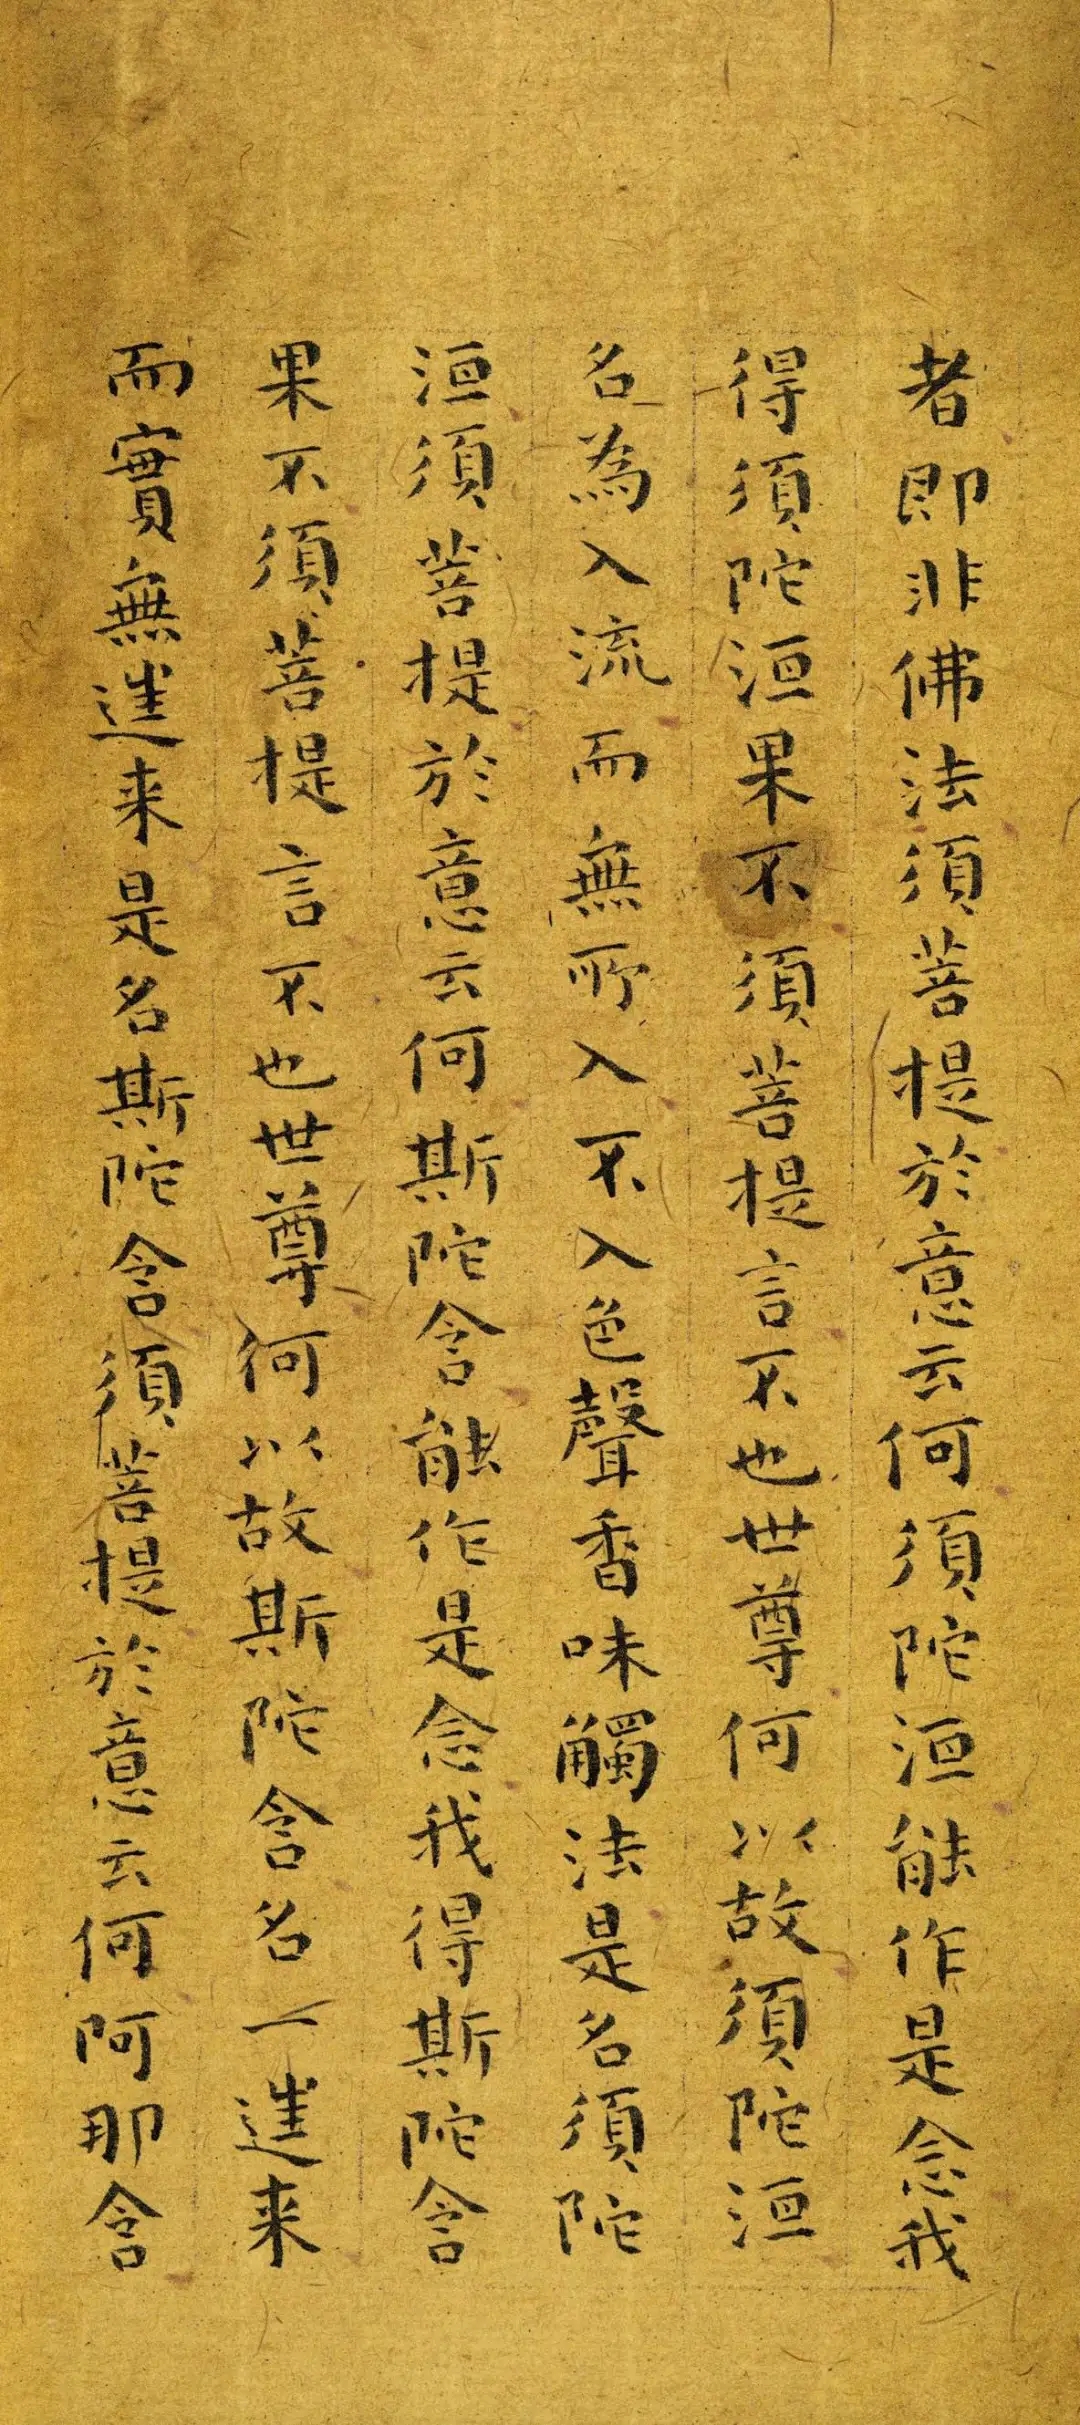 者即非佛法須菩提於意云何須陀洹能作是念我
得須陀洹果不須菩提言不也世尊何以故須陀洹
名為入流而無所入不入色聲香味觸法是名須陀
洹須菩提於意云何斯陀含能作是念我得斯陀含
果不須菩提言不也世尊何以故斯陀含名一進来
而實無進来是名斯陀含須菩提於意云何阿那含